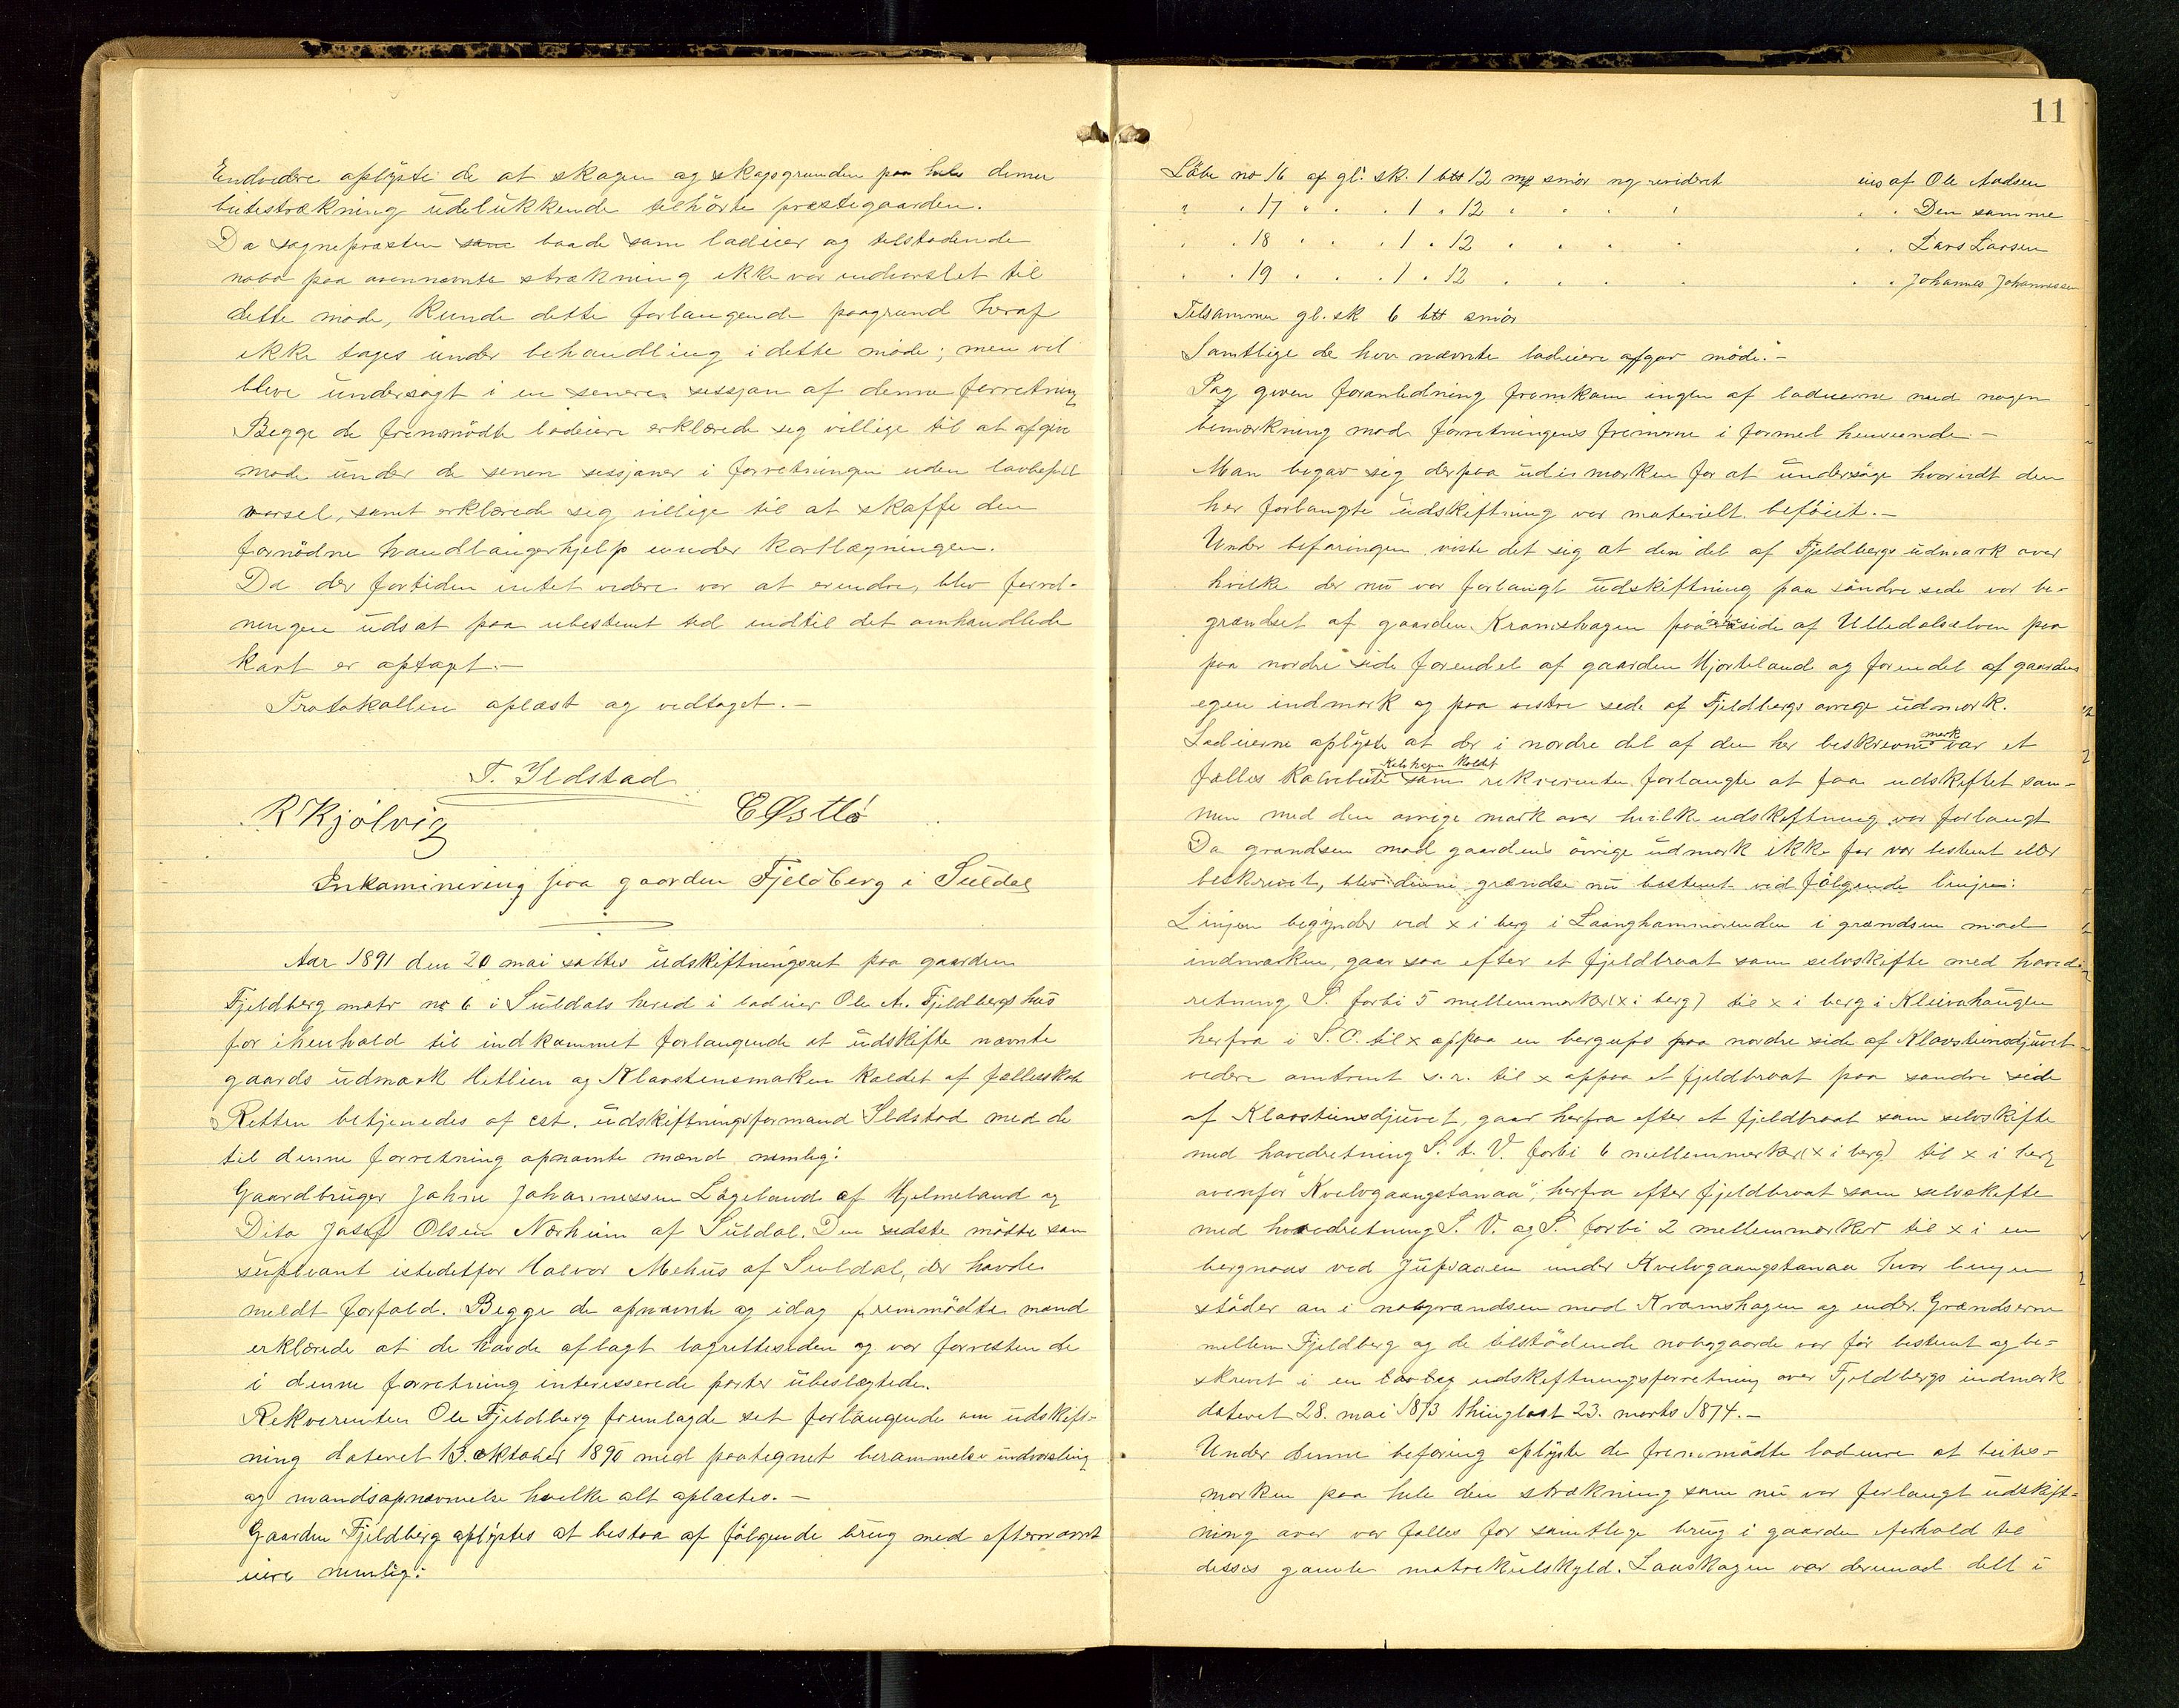 Endvidere oplyste de at skogen og skogsgrunden paa hele denne
beitestrækning udelukkende tilhörte prestegaarden.
Da sognepresten baade som lodeier og tilstødende
nabo paa ovennævnte strækning ikke var indvarslet til
dette möde, kunde dette forlangende paagrund heraf
ikke tages under behandling i dette möde; men vil
blive undersøgt i en senere sessjon af denne forretning
Begge de fremmödte lodeiere erklærede seg villige til at afgive
möde under de senere sessjoner i forretningen uden lovbefalt
varsel, samt erklærede sig villige til at skaffe den
fornödne haandlangerhjelp under kartlægningen.
Da der fortiden intet videre var at erindre, blev forret-
ningen udsat paa ubestemt tid indtil det omhandlede
kart er optaget.—
Protokollen oplæst og vedtaget.—
T. Ildstad
R Kjölvig E Østlö
Inkaminering paa gaarden Fjeldberg i Suldal
Aar 1891 den 20 mai sattes udskiftningsret paa gaarden
Fjeldberg matr no 6 i Suldals herred i lodeier Ole A. Fjeldbergs hus
for i henhold til indkommet forlangende at udskifte nævnte
gaards udmark Hetlien og Klaastensmarken kaldet af fællesskab
Retten betjenedes af cst. udskiftningsformand Ildstad med de
til denne forretning opnævnte mænd nemlig:
Gaardbruger Johne Johannessen Lögeland af Hjelmeland og
Dito Josef Olsen Nærheim af Suldal. Den sidste mötte som
supleant istedetfor Halvor Mehus af Suldal, der havde
meldt forfald. Begge de opnævnte og idag fremmödte mænd
erklærede at de havde aflagt lagretteseden og var forresten de
i denne forretning interesserede parter ubeslægtede.
Rekvirenten Ole Fjeldberg fremlagde set forlangende om udskift-
ning dateret 13. oktober 1890 med paategnet berammelse indvarsling
og mandsopnævnelse hvilke alt oplæstes.—
Gaarden Fjeldberg oplystes at bestaa af fölgende brug med efternævnt
eiere nemlig:
11
Löbe no 16 af gl. sk. 1 btt 12 mg smör ny revideret eies af Ole Aadsen
" " 17 " " " 1 " 12 " " " " " " Den samme
" " 18 " " " 1 " 12 " " " " " " Lars Larsen
" " 19 " " " 1 " 12 " " " " " " Johannes Johannessen
Tilsammen gl. sk 6 btt smör
Samtlige de her nævnte lodeiere afgav möde.—
Paa given foranledning fremkom ingen af lodeierne med nogen
bemærkning mod forretningens fremme i formel henseende—
Man begav sig derpaa ud i marken for at undersöge hvorvidt den
her forlangte udskiftning var materielt beföiet.—
Under befaringen viste det sig at den del af Fjeldbergs udmark over
hvilke der nu var forlangt udskiftning paa söndre side var be-
grændset af gaarden Kramshagen paa side af Ulledalselven paa
paa nordre side forendel af gaarden Hjorteland og forendel af gaardens
egen indmark og paa vestre side af Fjeldbergs övrige udmark.
Lodeierne oplyste at der i nordre del af den her beskrevne mark var et
fælles kalvebeite som rekvirenten forlangte at faa udskiftet sam-
men med den övrige mark over hvilke udskiftning var forlangt
Da grændsen mod gaardens övrige udmark ikke för var bestemt eller
beskrevet, blev denne grændse nu bestemt ved fölgende linjer:
Linjen begynder ved x i berg i Laanghammerenden i grændsen mod
indmarken, gaar saa efter et fjeldbraat som selvskifte med hoved-
retning S. forbi 5 mellemmerker (x i berg) til x i berg i Kleivahaugen
herfra i S.O. til x oppaa en bergups paa nordre side af Klovsteinsdjuvet
videre omtrent s.r. til x oppaa et fjeldbraat paa söndre side
af Klaasteinsdjuvet, gaar herfra efter et fjeldbraat som selvskifte
med hovedretning S. t. V. forbi 6 mellemmerker (x i berg) til x i berg
ovenfor "Kvelvgaangstanaa", herfra efter fjeldbraat som selvskifte
med hovedretning S. V. og S. forbi 2 mellemmerker til x i en
bergnaas ved Jupaaen under Kvelvgaangstanaa hvor linjen
stöder an i nabogrændsen mod Kramshagen og ender. Grændserne
mellem Fjeldberg og de tilstödende nabogaarde var för bestemt og be-
skrevet i en lovlig udskiftningsforretning over Fjeldbergs indmark
dateret 28. mai 1873 thinglæst 23. marts 1874.—
Under denne befaring oplyste de fremmödte lodeiere at beites-
marken paa hele den strækning som nu var forlangt udskift-
ning over var fælles for samtlige brug i gaarden iforhold til
disses gamle matrekulskyld. Lauvskogen var derimod delt i